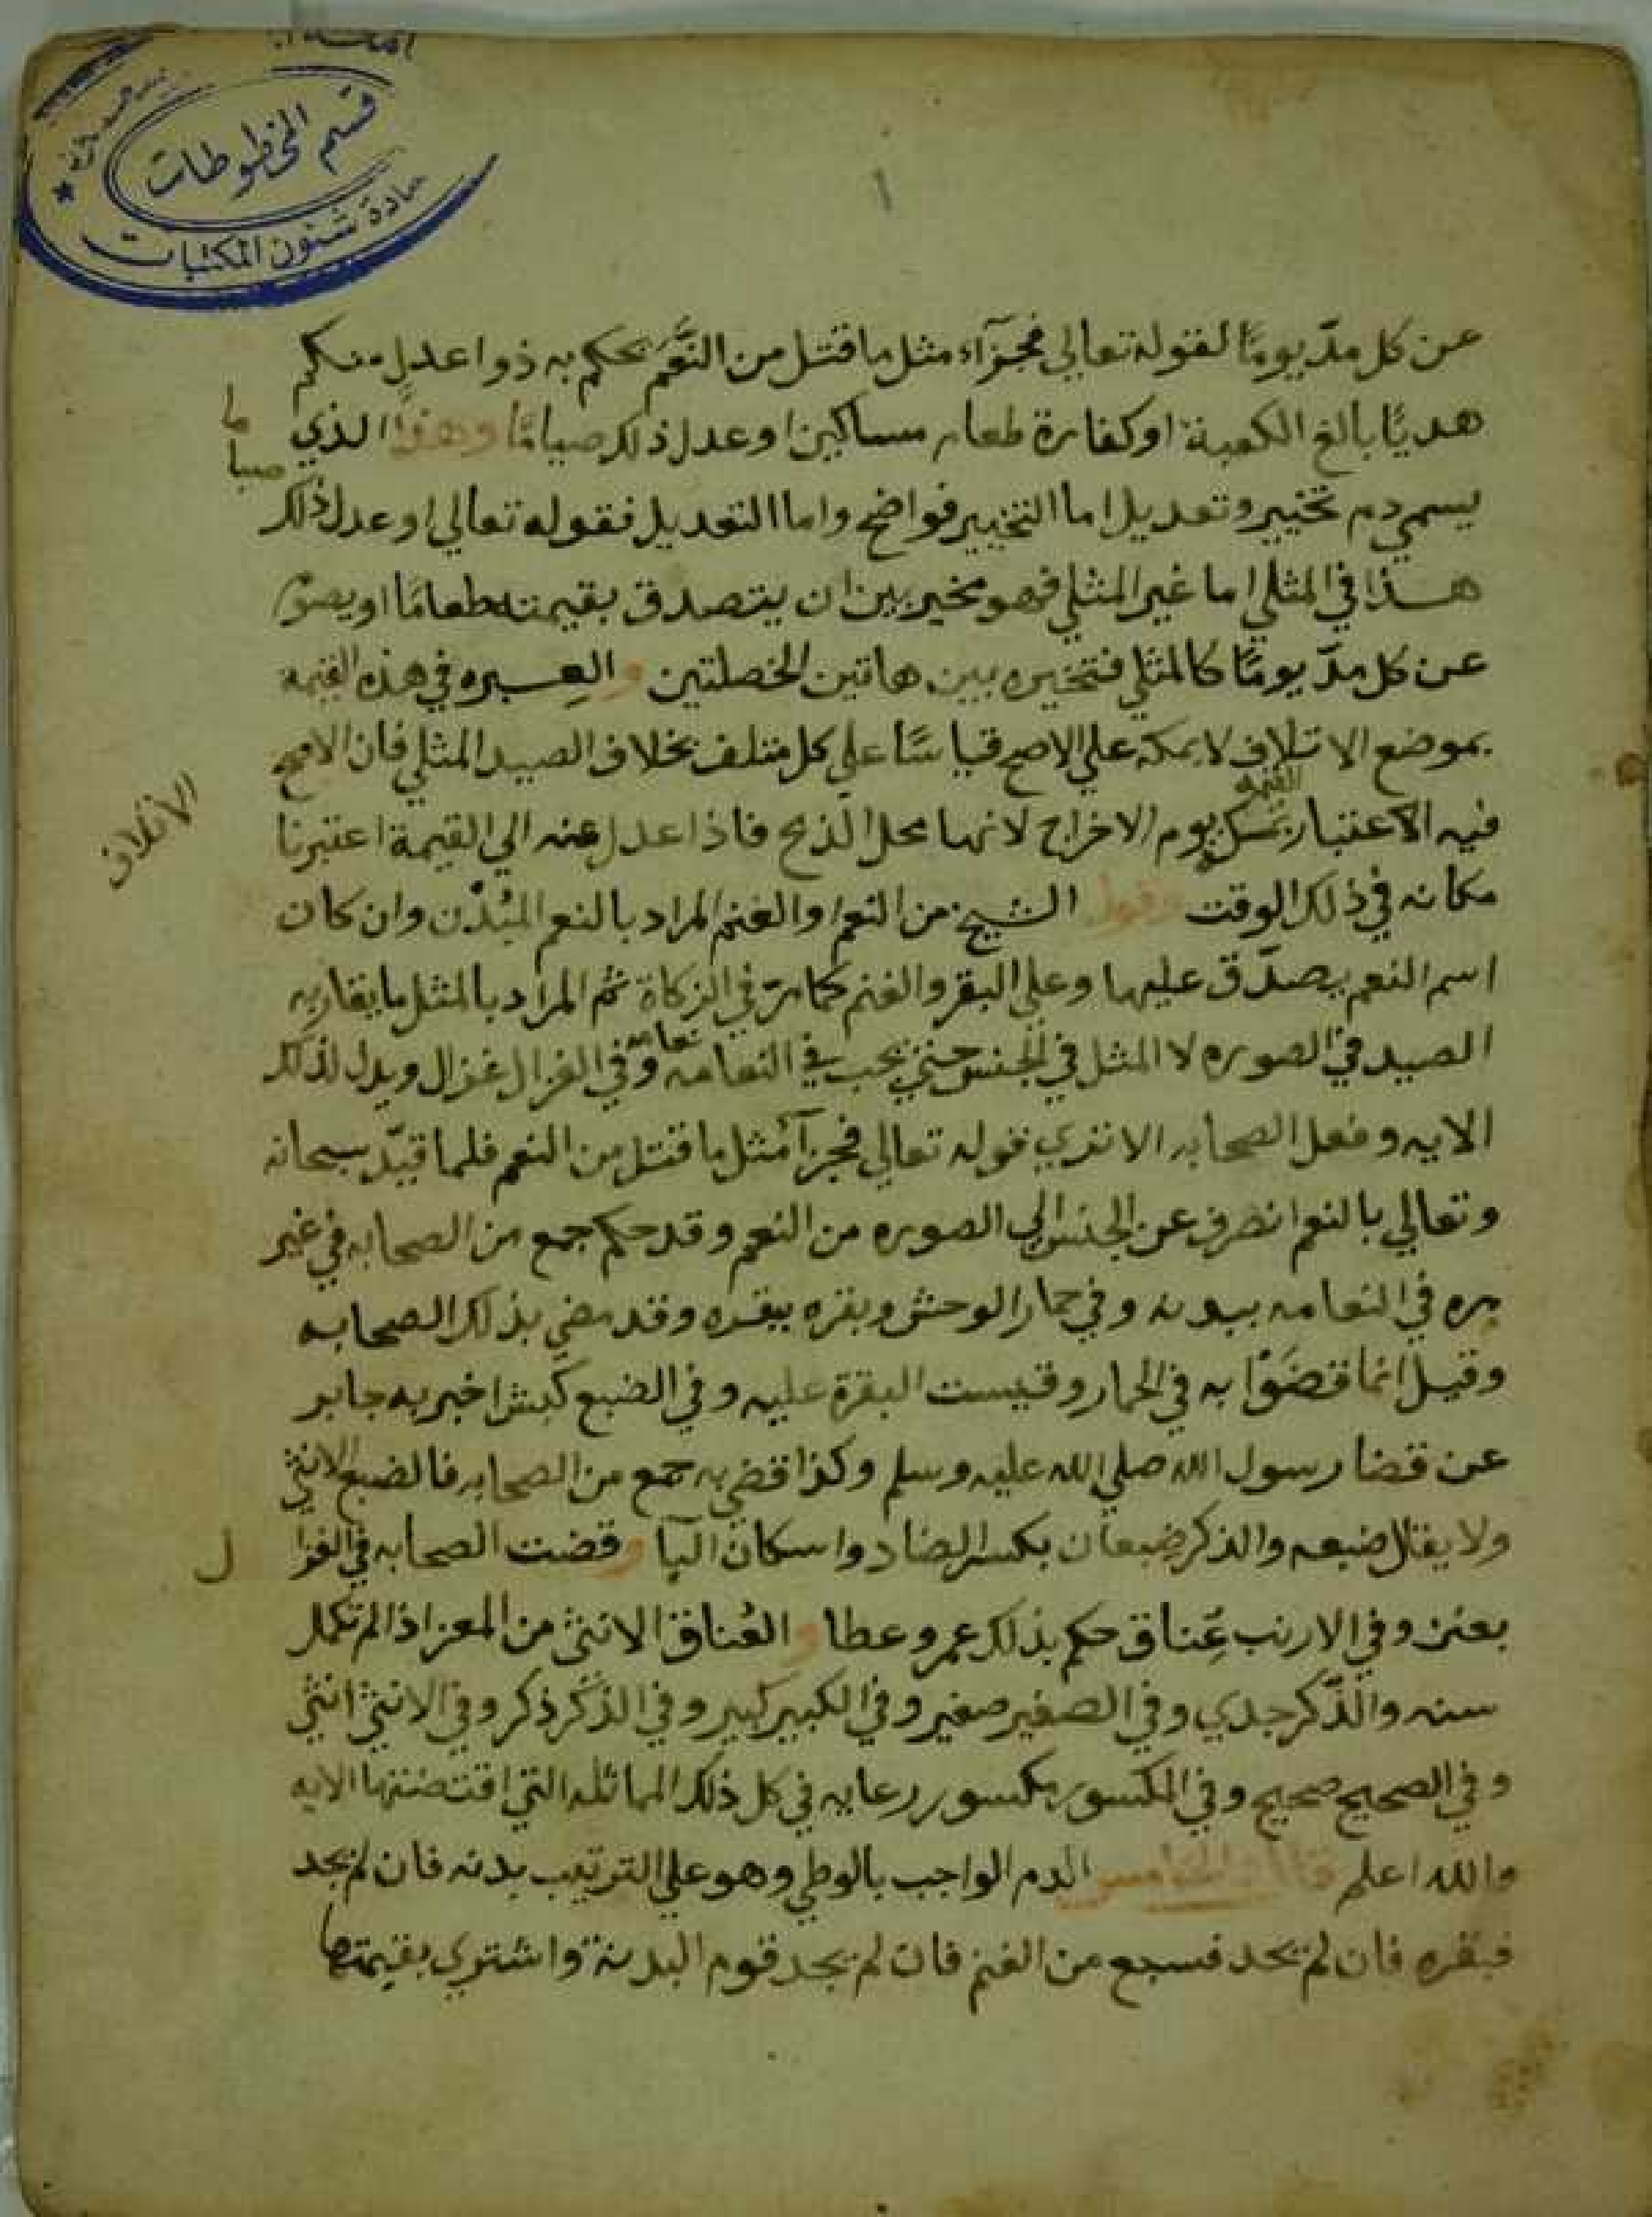 قسم المخطوطات
عمادة شئون المكتبات
١
عن كل مدّ يومًا لقوله تعالي فجزآء مثل ما قتل من النَّعَم يحكم به ذوا عدلٍ منكم
هديًا بالغ الكعبة او كفارة طعام مساكين او عدل ذلك صيامًا وهذا الذي
يسمي دم تخيير وتعديل اما التخيير فواضح واما التعديل فقوله تعالي او عدل ذلك
صيا
ما
هذا في المثلي اما غير المثلي فهو مخير بين ان يتصدق بقيمته طعامًا او يصوم
عن كل مدّ يومًا كالمثلي فتخيره بين هاتين الخصلتين والعِبره في هذه القيمه
بموضع الاتلاف لا بمكة علي الاصح قياسًا علي كل متلف بخلاف الصيد المثلي فان الاصح
الاتلاف
فيه الاعتبار القيمه بمكة يوم الاخراج لانها محل الذبح فاذا عدل عنه الي القيمة اعتبرنا
مكانه في ذلك الوقت وقول الشيخ من النعم او الغنم المراد بالنعم البُدْن وان كان
اسم النعم يصدّق عليها وعلي البقر والغنم كما مرّ في الزكاة ثم المراد بالمثل ما يقاربه
الصيد في الصوره لا المثل في الجنس حتي يجب في النعامه نعامه وفي الغزال غزال ويدل لذلك
الايه وفعل الصحابه الا تري قوله تعالي فجزآ مثل ما قتل من النعم فلما قيّد سبحانه
وتعالي بالنعم انصرف عن الجنس الي الصوره من النعم وقد حكم جمع من الصحابه في غير
مره في النعامه ببدنه وفي حمار الوحش وبقره ببقره وقد مضي بذلك الصحابه
وقيل انما قضَوْا به في الحمار وقيست البقرة عليه وفي الضبع كبش اخبر به جابر
عن قضا رسول الله صلي الله عليه وسلم وكذا قضي به جمع من الصحابه فالضبع الانثي
ولا يقال ضبعه والذكر ضبعان بكسر الضاد واسكان البآ وقضت الصحابه في الغزا ل
بعنز وفي الارنب عَناق حكم بذلك عمر وعطا والعَناق الانثي من المعز اذا لم تكمل
سنه والذّكر جدي وفي الصغير صغير وفي الكبير كبير وفي الذّكر ذكر وفي الانثي انثي
وفي الصحيح صحيح وفي المكسور مكسور رعايه في كل ذلك المماثله التي اقتضتها الايه
والله اعلم قال الخامس الدم الواجب بالوطي وهو علي الترتيب بدنه فان لم يجد
فبقره فان لم يجد فسبع من الغنم فان لم يجد قوم البدنة واشتري بقيمتها